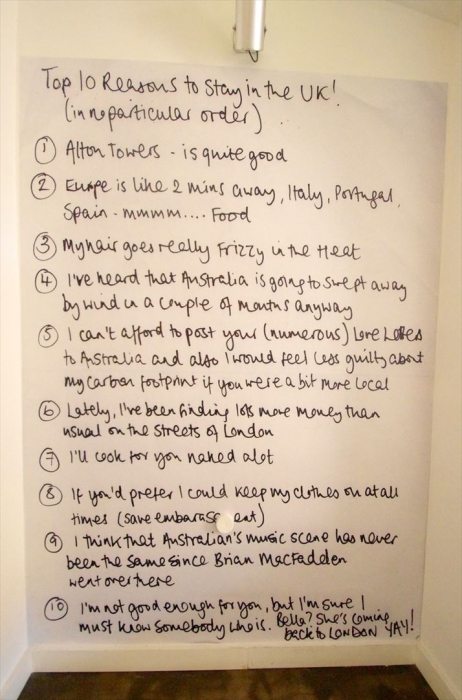 Top 10 Reasons to Stay in the UK!
(in no particular order)
① Alton Towers - is quite good
② Europe is like 2 mins away, Italy, Portugal,
Spain - mmmm.... Food
③ My hair goes really Frizzy in the Heat
④ I've heard that Australia is going to swept away
by wind in a couple of months anyway
⑤ I can't afford to post your (numerous) Love Letters
to Australia and also I would feel less guilty about
my carbon footprint if you were a bit more local
⑥ Lately, I've been finding lots more money than
usual on the streets of London
⑦ I'll cook for you naked alot
⑧ If you'd prefer I could keep my clothes on at all
times (save embarass ent)
⑨ I think that Australian's music scene has never
been the same since Brian MacFadden
went over there
⑩ I'm not good enough for you, but I'm sure I
must know somebody who is. Bella? She's coming
back to LONDON YAY!